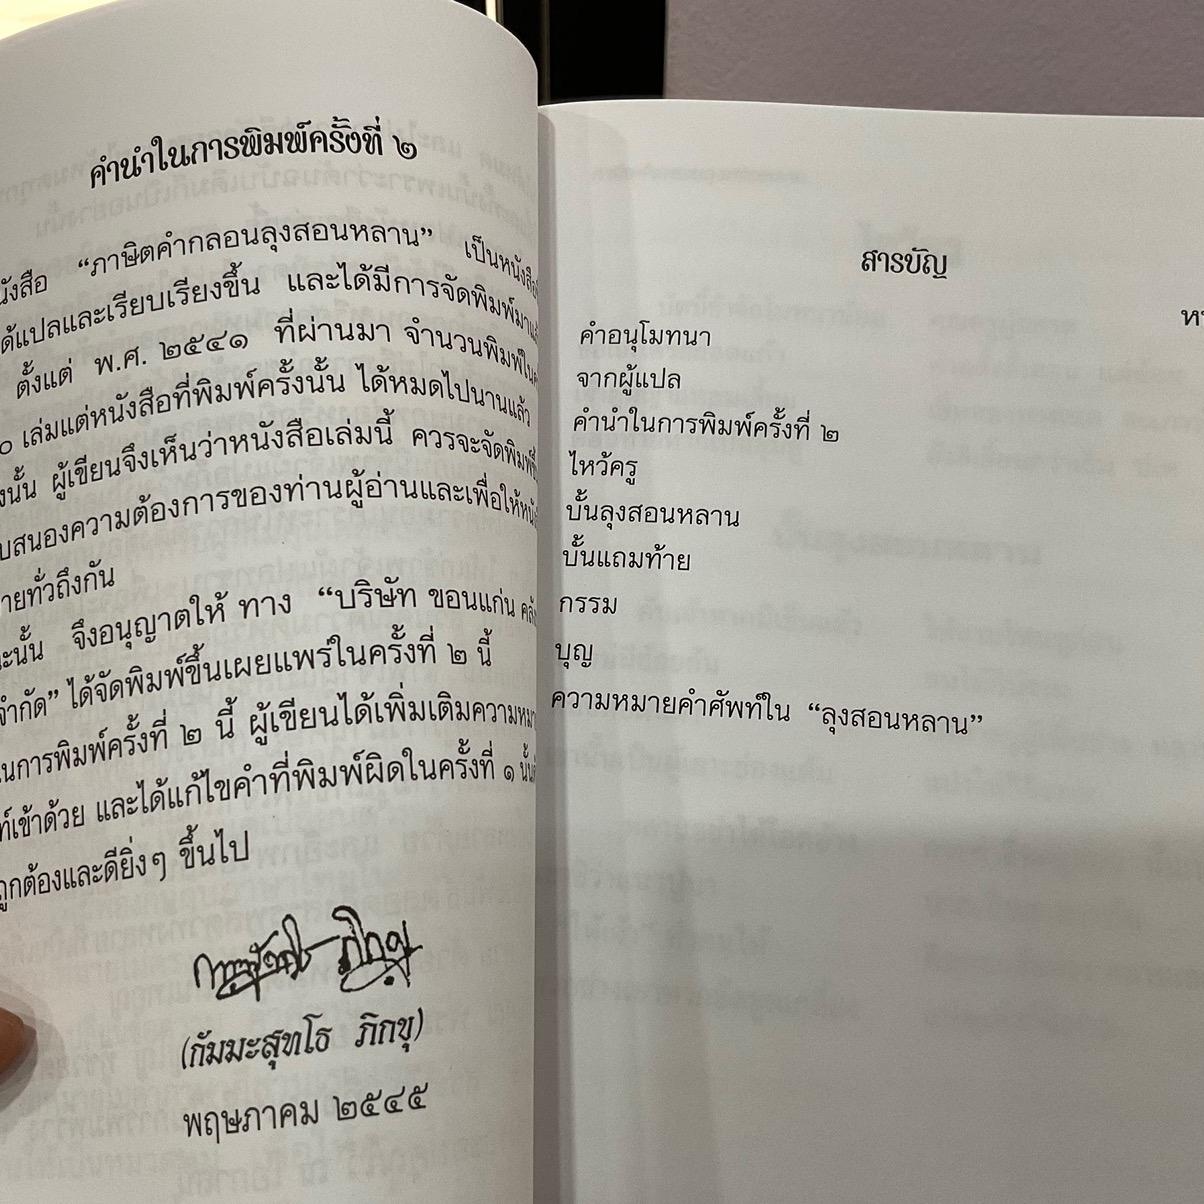 คำนำในการพิมพ์ครั้งที่ ๒
“ภาษิตคำกลอนลุงสอนหลาน” เป็นหนังสือ
ได้แปลและเรียบเรียงขึ้น และได้มีการจัดพิมพ์มา
ตั้งแต่ พ.ศ. ๒๕๔๑ ที่ผ่านมา จำนวนพิมพ์ใน
เล่มแต่หนังสือที่พิมพ์ครั้งนั้น ได้หมดไปนานแล้ว
ผู้เขียนจึงเห็นว่าหนังสือเล่มนี้ ควรจะจัดพิมพ์
สนองความต้องการของท่านผู้อ่านและเพื่อให้
ทั่วถึงกัน
จึงอนุญาตให้ ทาง “บริษัท ขอนแก่น
จำกัด” ได้จัดพิมพ์ขึ้นเผยแพร่ในครั้งที่ ๒ นี้
ในการพิมพ์ครั้งที่ ๒ นี้ ผู้เขียนได้เพิ่มเติม
เข้าด้วย และได้แก้ไขคำที่พิมพ์ผิดในครั้งที่ ๑
ถูกต้องและดียิ่งๆ ขึ้นไป
(กัมมะสุทโธ ภิกขุ)
พฤษภาคม ๒๕๔๕
สารบัญ
คำอนุโมทนา
จากผู้แปล
คำนำในการพิมพ์ครั้งที่ ๒
ไหว้ครู
บั้นลุงสอนหลาน
บั้นแถมท้าย
กรรม
บุญ
ความหมายคำศัพท์ใน “ลุงสอนหลาน”